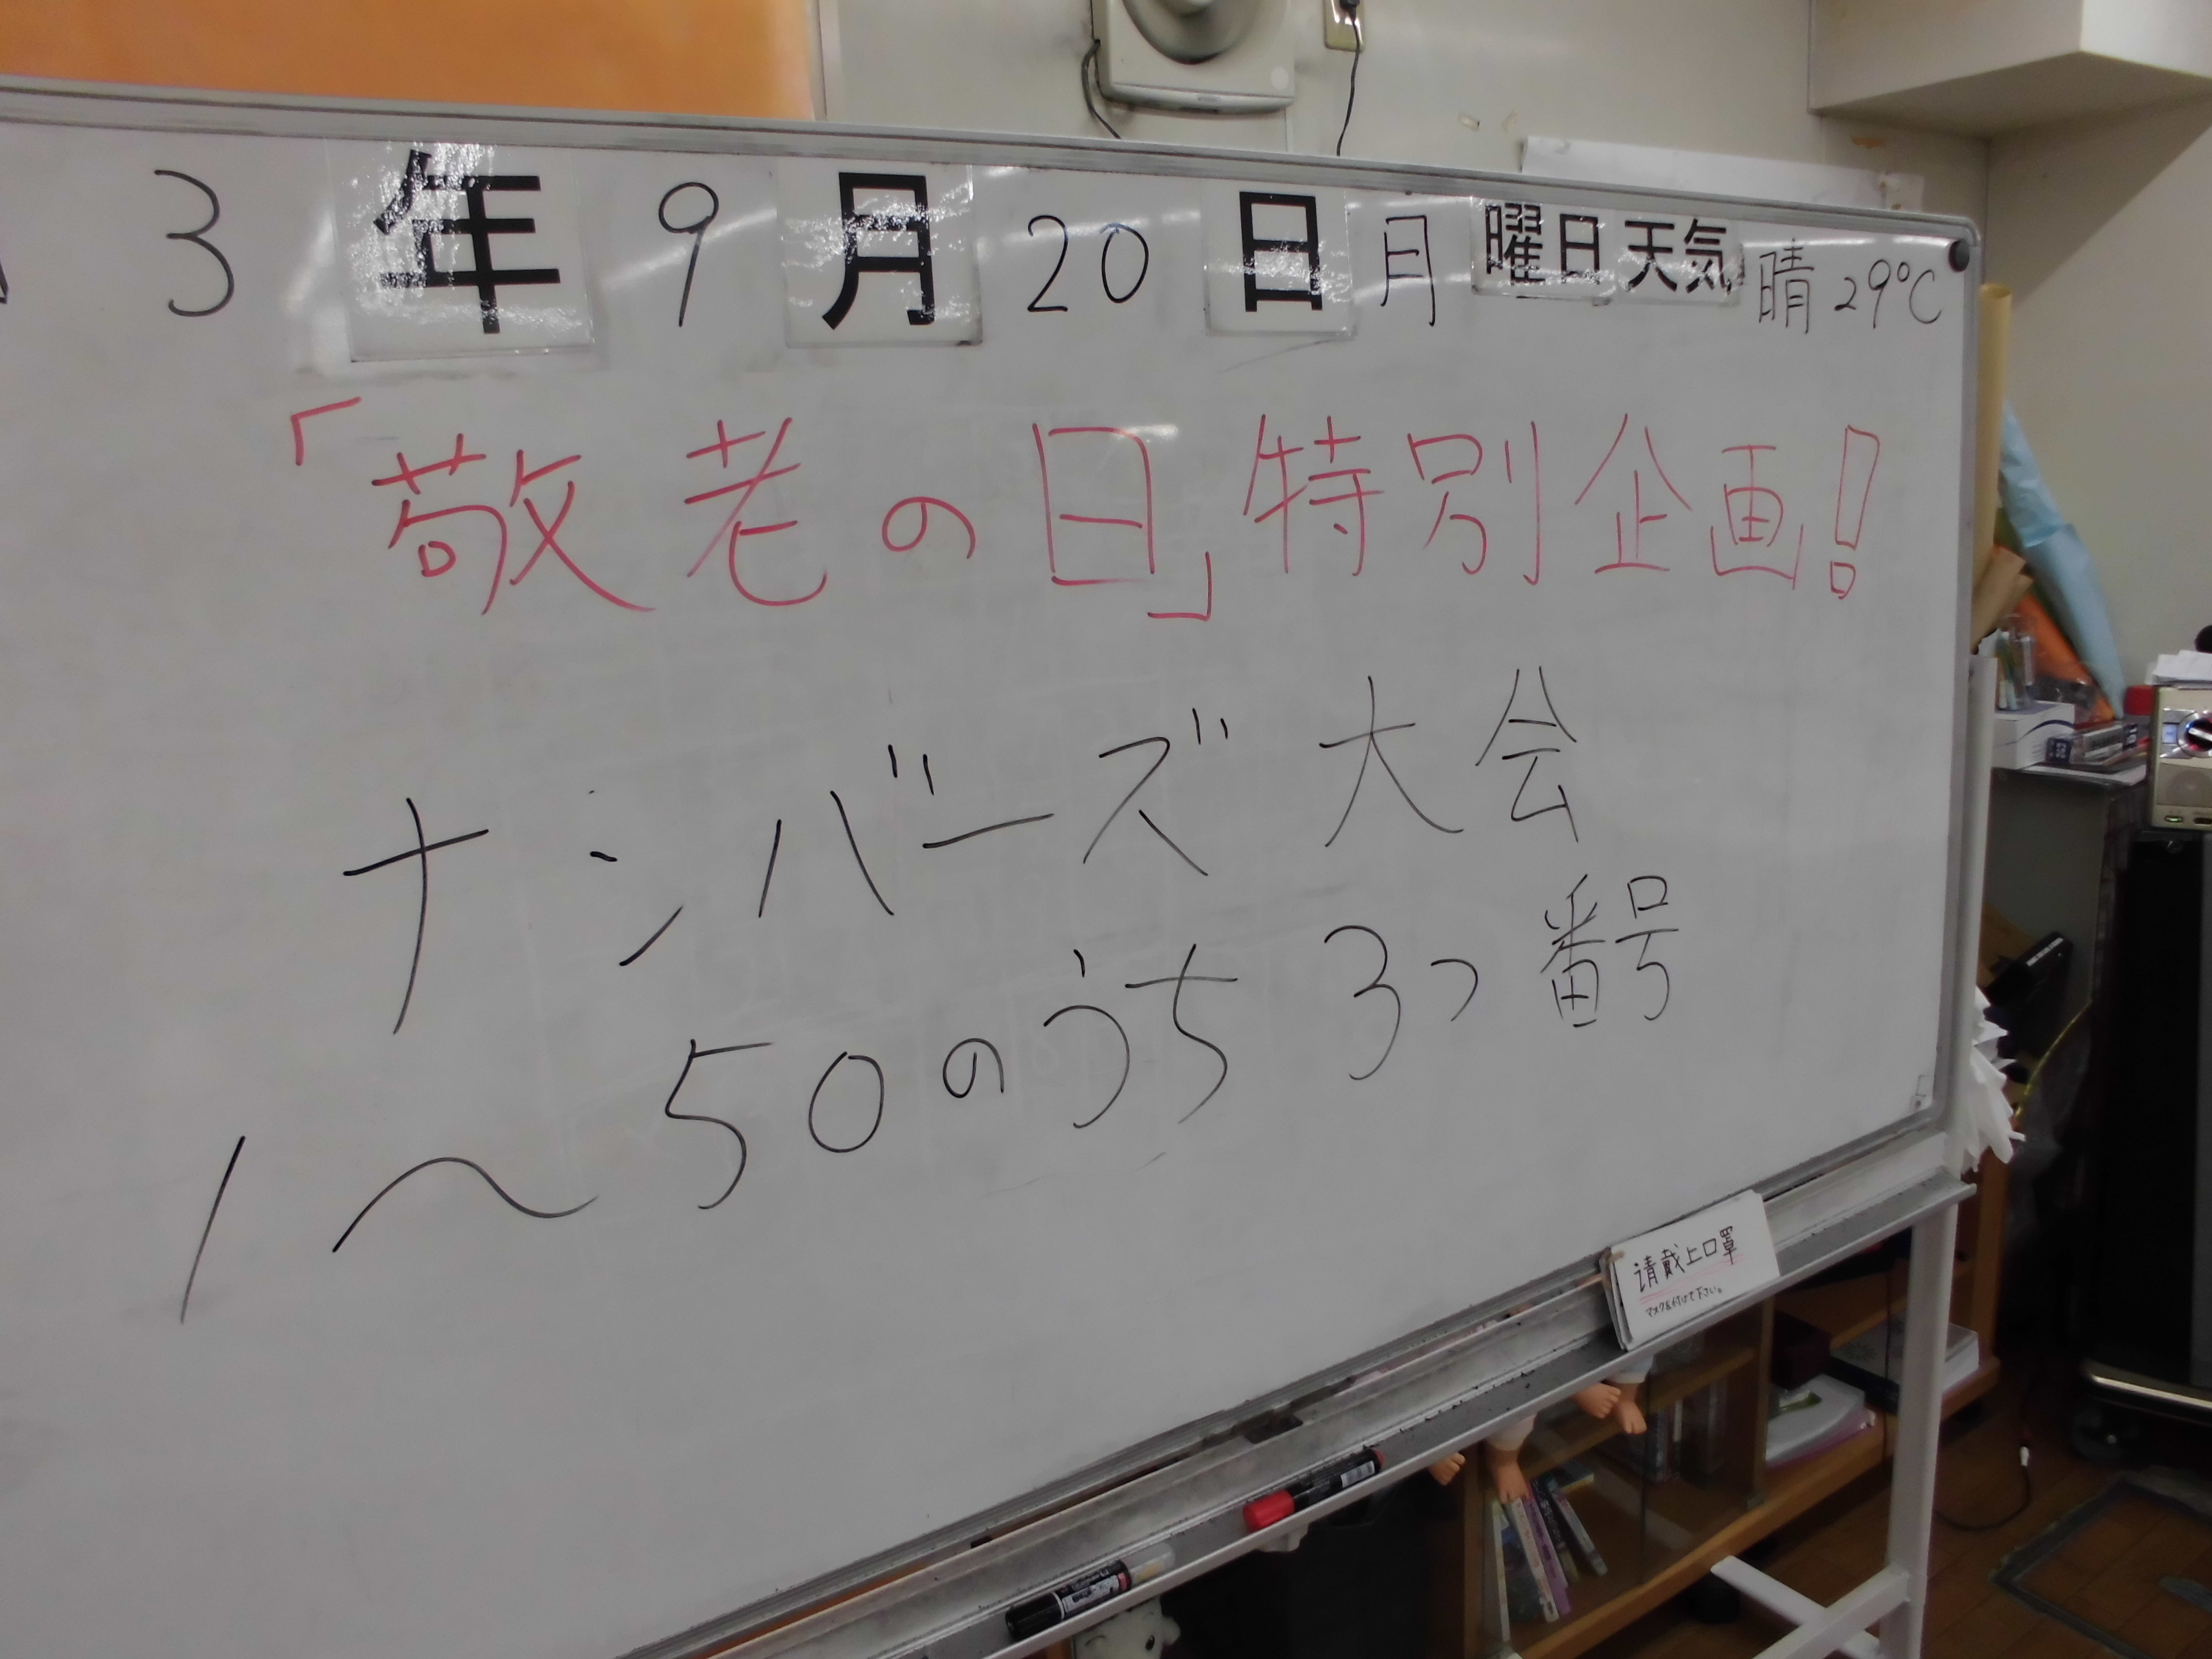 3年9月20日月曜日天気晴29℃
「敬老の日」特別企画!
ナンバーズ大会
1〜50のうち3つ番号
请戴上口罩
マスクを付けて下さい。